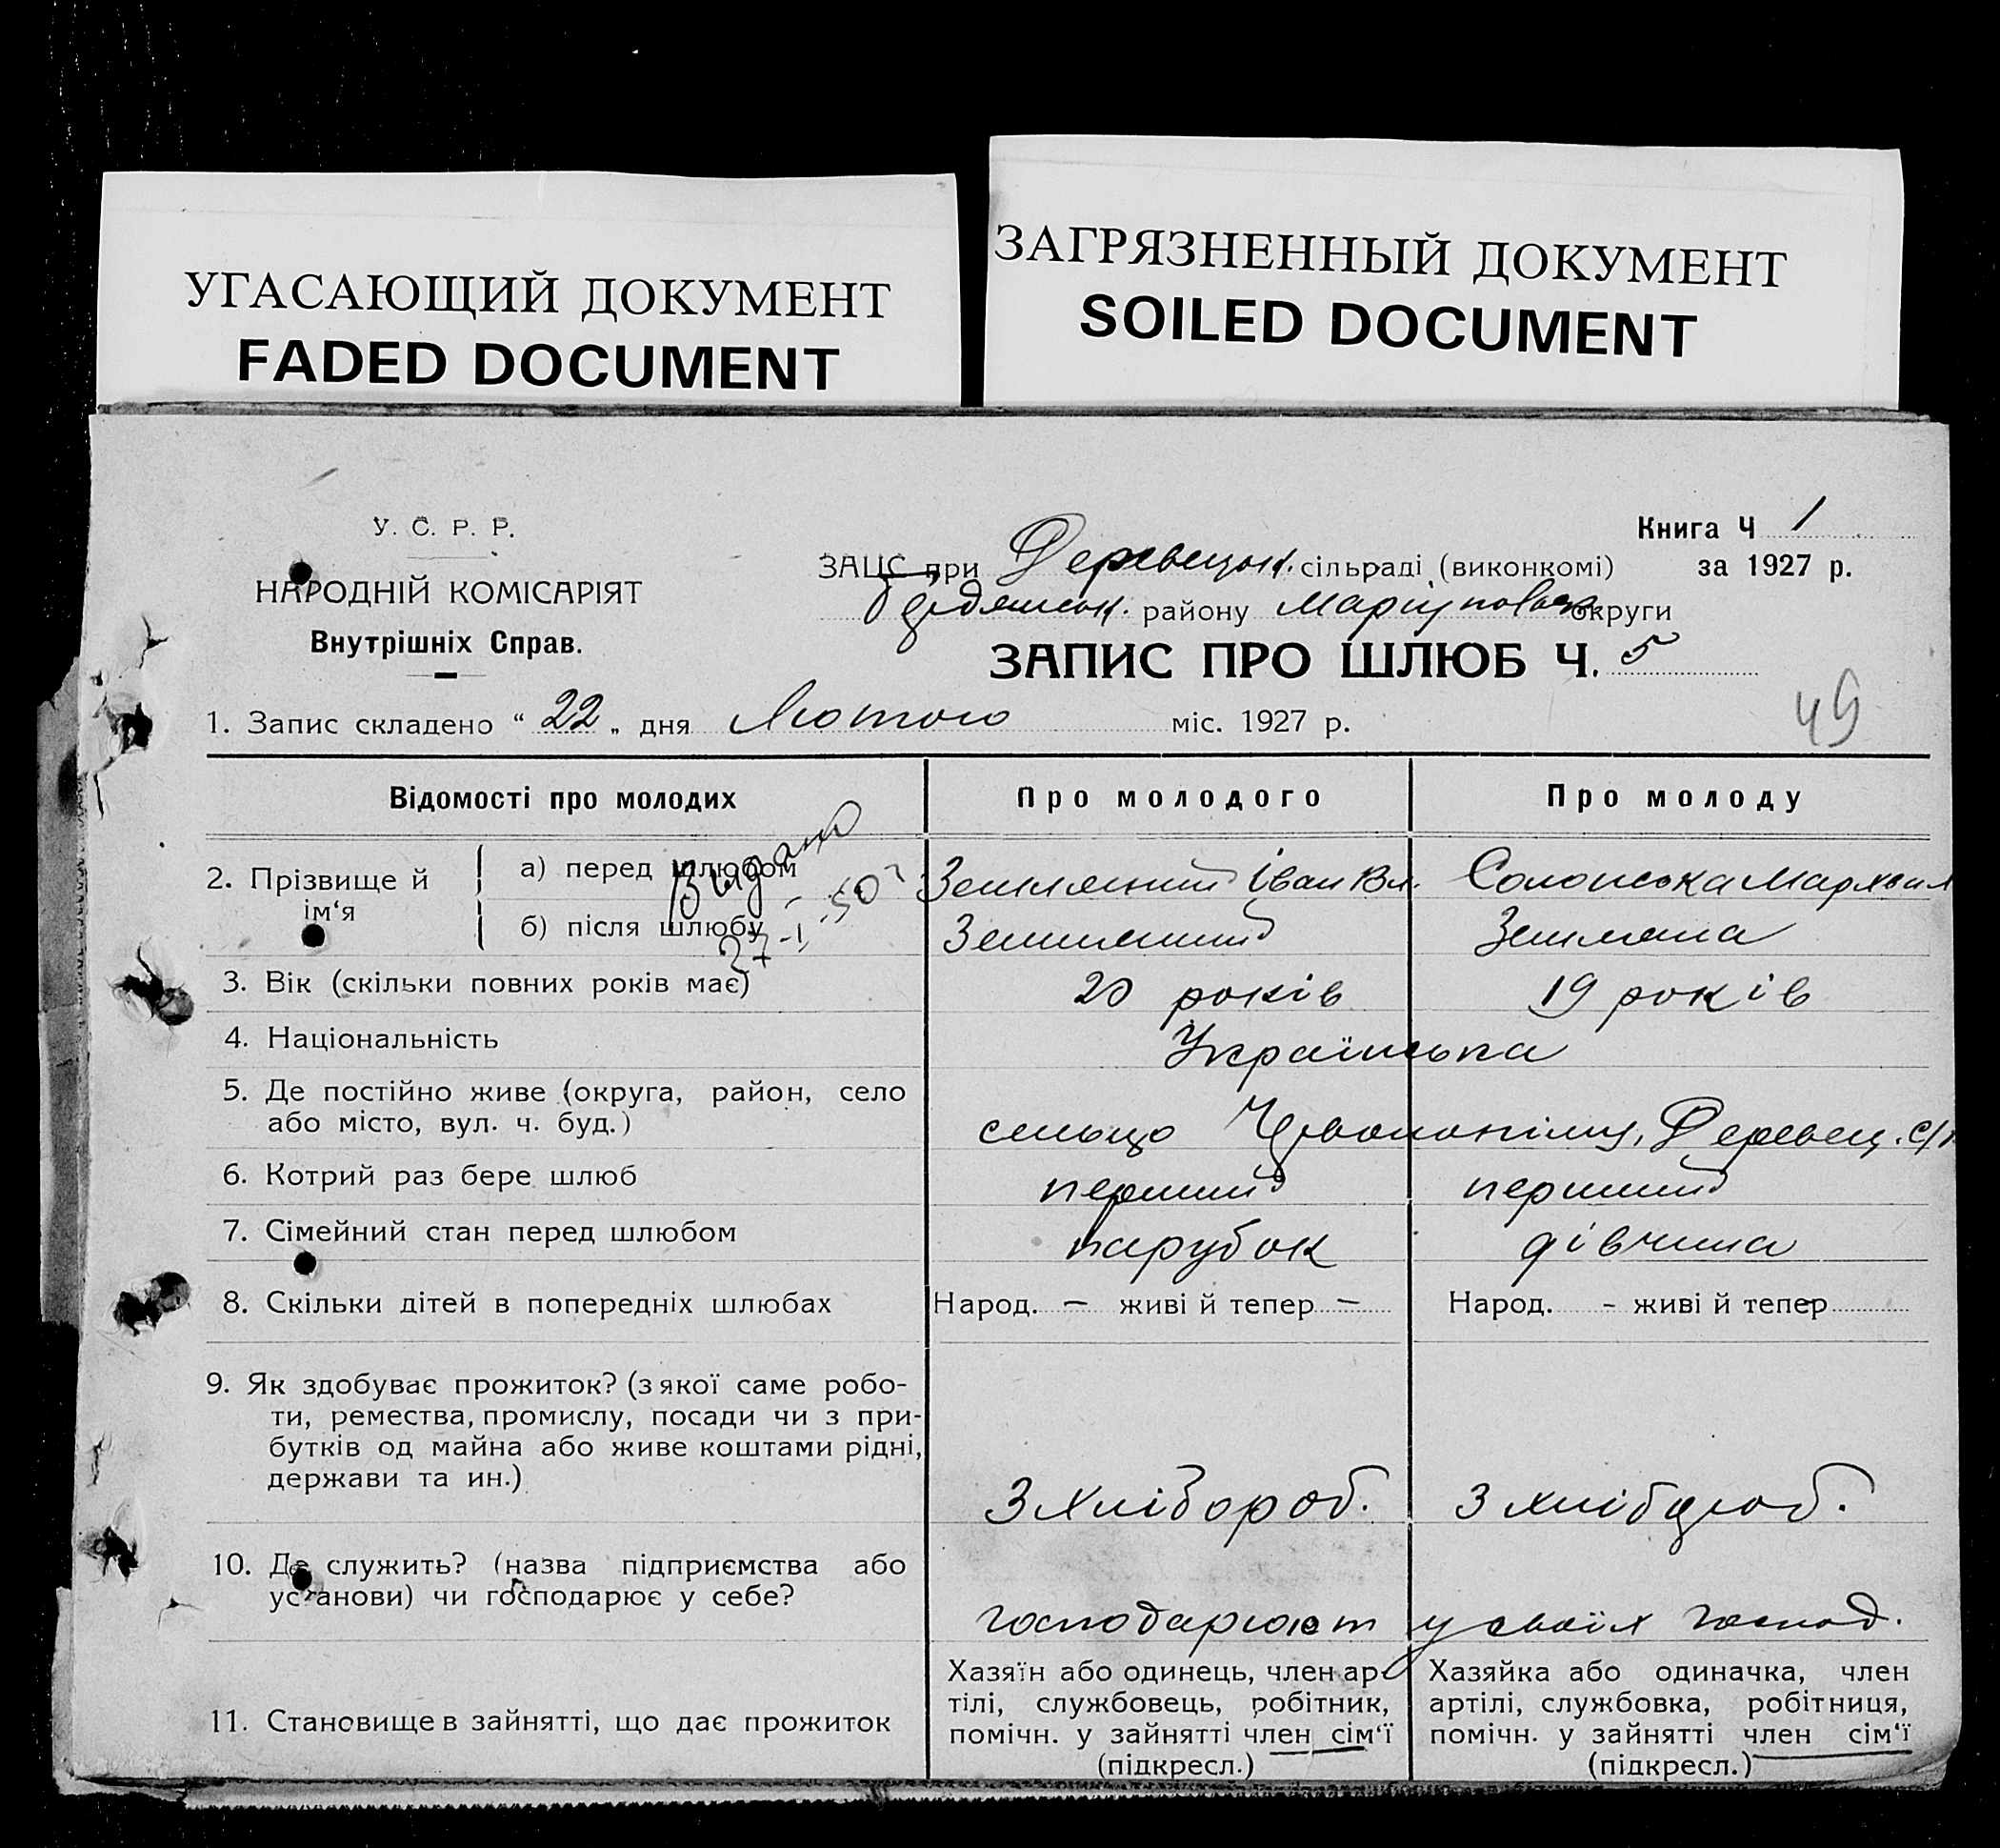 УГАСАЮЩИЙ ДОКУМЕНТ
FADED DOCUMENT
ЗАГРЯЗНЕННЫЙ ДОКУМЕНТ
SOILED DOCUMENT
У. С. Р. Р.
НАРОДНІЙ КОМІСАРІЯТ
Внутрішніх Справ.
Книга Ч 1
за 1927 р.
ЗАЦС при Деревецьк. сільраді (виконкомі)
району округи
ЗАПИС ПРО ШЛЮБ Ч. 5
49
1. Запис складено “ 22 „ дня Лютого міс. 1927 р.
Відомості про молодих
Про молодого
Про молоду
Видано
2. Прізвище й ім‘я
а) перед шлюбом
Іван Вл.
б) після шлюбу
3. Вік (скільки повних років має)
20 років
19 років
4. Національність
Українська
5. Де постійно живе (округа, район, село
або місто, вул. ч. буд.)
сельцо Деревец. с/р
6. Котрий раз бере шлюб
перший
перший
7. Сімейний стан перед шлюбом
парубок
дівчина
8. Скільки дітей в попередніх шлюбах
Народ. – живі й тепер –
Народ. - живі й тепер
9. Як здобуває прожиток? (з якої саме робо-
ти, ремества, промислу, посади чи з при-
бутків од майна або живе коштами рідні,
держави та ин.)
З хлібороб.
З хлібороб.
10. Де служить? (назва підприємства або
установи) чи господарює у себе?
господарюют у своїх господ.
11. Становище в зайнятті, що дає прожиток
Хазяїн або одинець, член ар-
тілі, службовець, робітник,
помічн. у зайнятті член сім‘ї
(підкресл.)
Хазяйка або одиначка, член
артілі, службовка, робітниця,
помічн. у зайнятті член сім‘ї
(підкресл.)